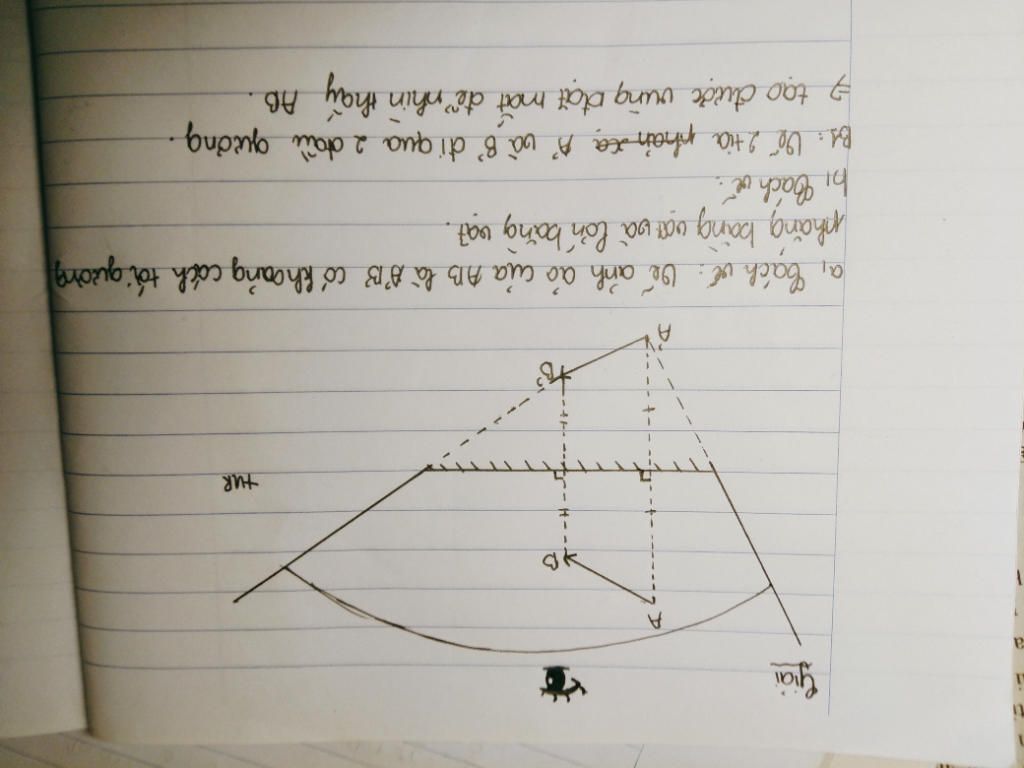 Giải
A
B
B'
A'
a, Cách vẽ: Vẽ ảnh ảo của AB là A'B' có khoảng cách tới gương
phẳng bằng vật và lớn bằng vật.
b, Cách vẽ:
B1: Vẽ 2 tia phản xạ A' và B' đi qua 2 đầu gương.
=> tạo được vùng đặt mắt để nhìn thấy AB.